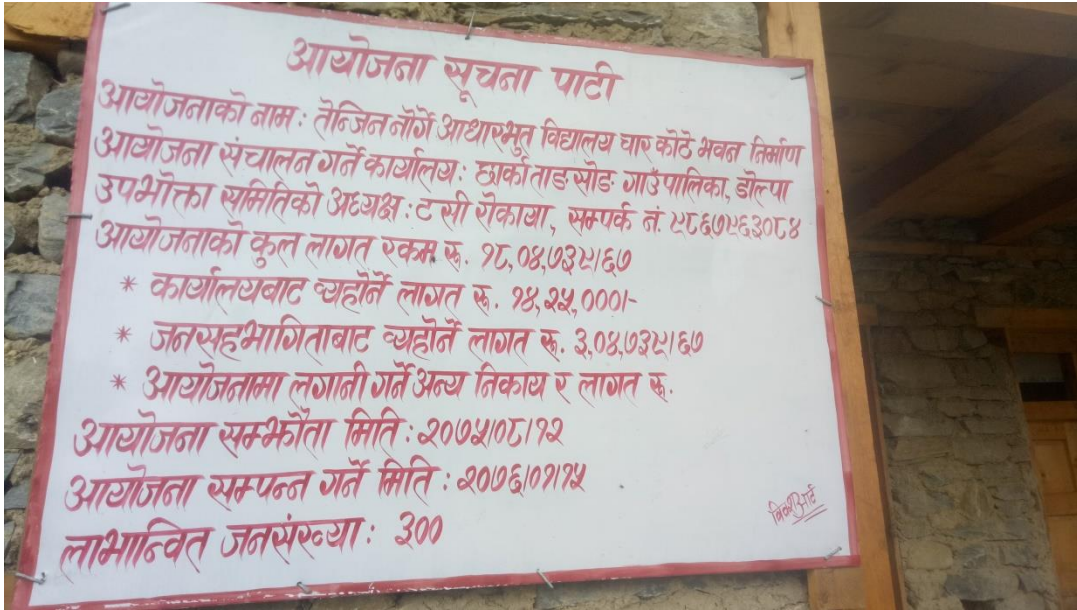 आयोजना सूचना पाटी
आयोजनाको नाम : तेन्जिन नोर्गे आधारभुत विद्यालय चार कोठे भवन निर्माण
आयोजना संचालन गर्ने कार्यालय : छार्का ताङ सोङ गाउँपालिका, डोल्पा
उपभोक्ता समितिको अध्यक्ष : टसी रोकाया, सम्पर्क नं. ९८६७९६३०८४
आयोजनाको कुल लागत रकम रू. १८,०४,७३९।६७
* कार्यालयबाट व्यहोर्ने लागत रू. १४,२५,०००।-
* जनसहभागिताबाट व्यहोर्ने लागत रू. ३,०४,७३९।६७
* आयोजनामा लगानी गर्ने अन्य निकाय र लागत रू.
आयोजना सम्झौता मिति : २०७५।०८।१२
आयोजना सम्पन्न गर्ने मिति : २०७६।०१।१५
लाभान्वित जनसंख्या : ३००
आर्ट